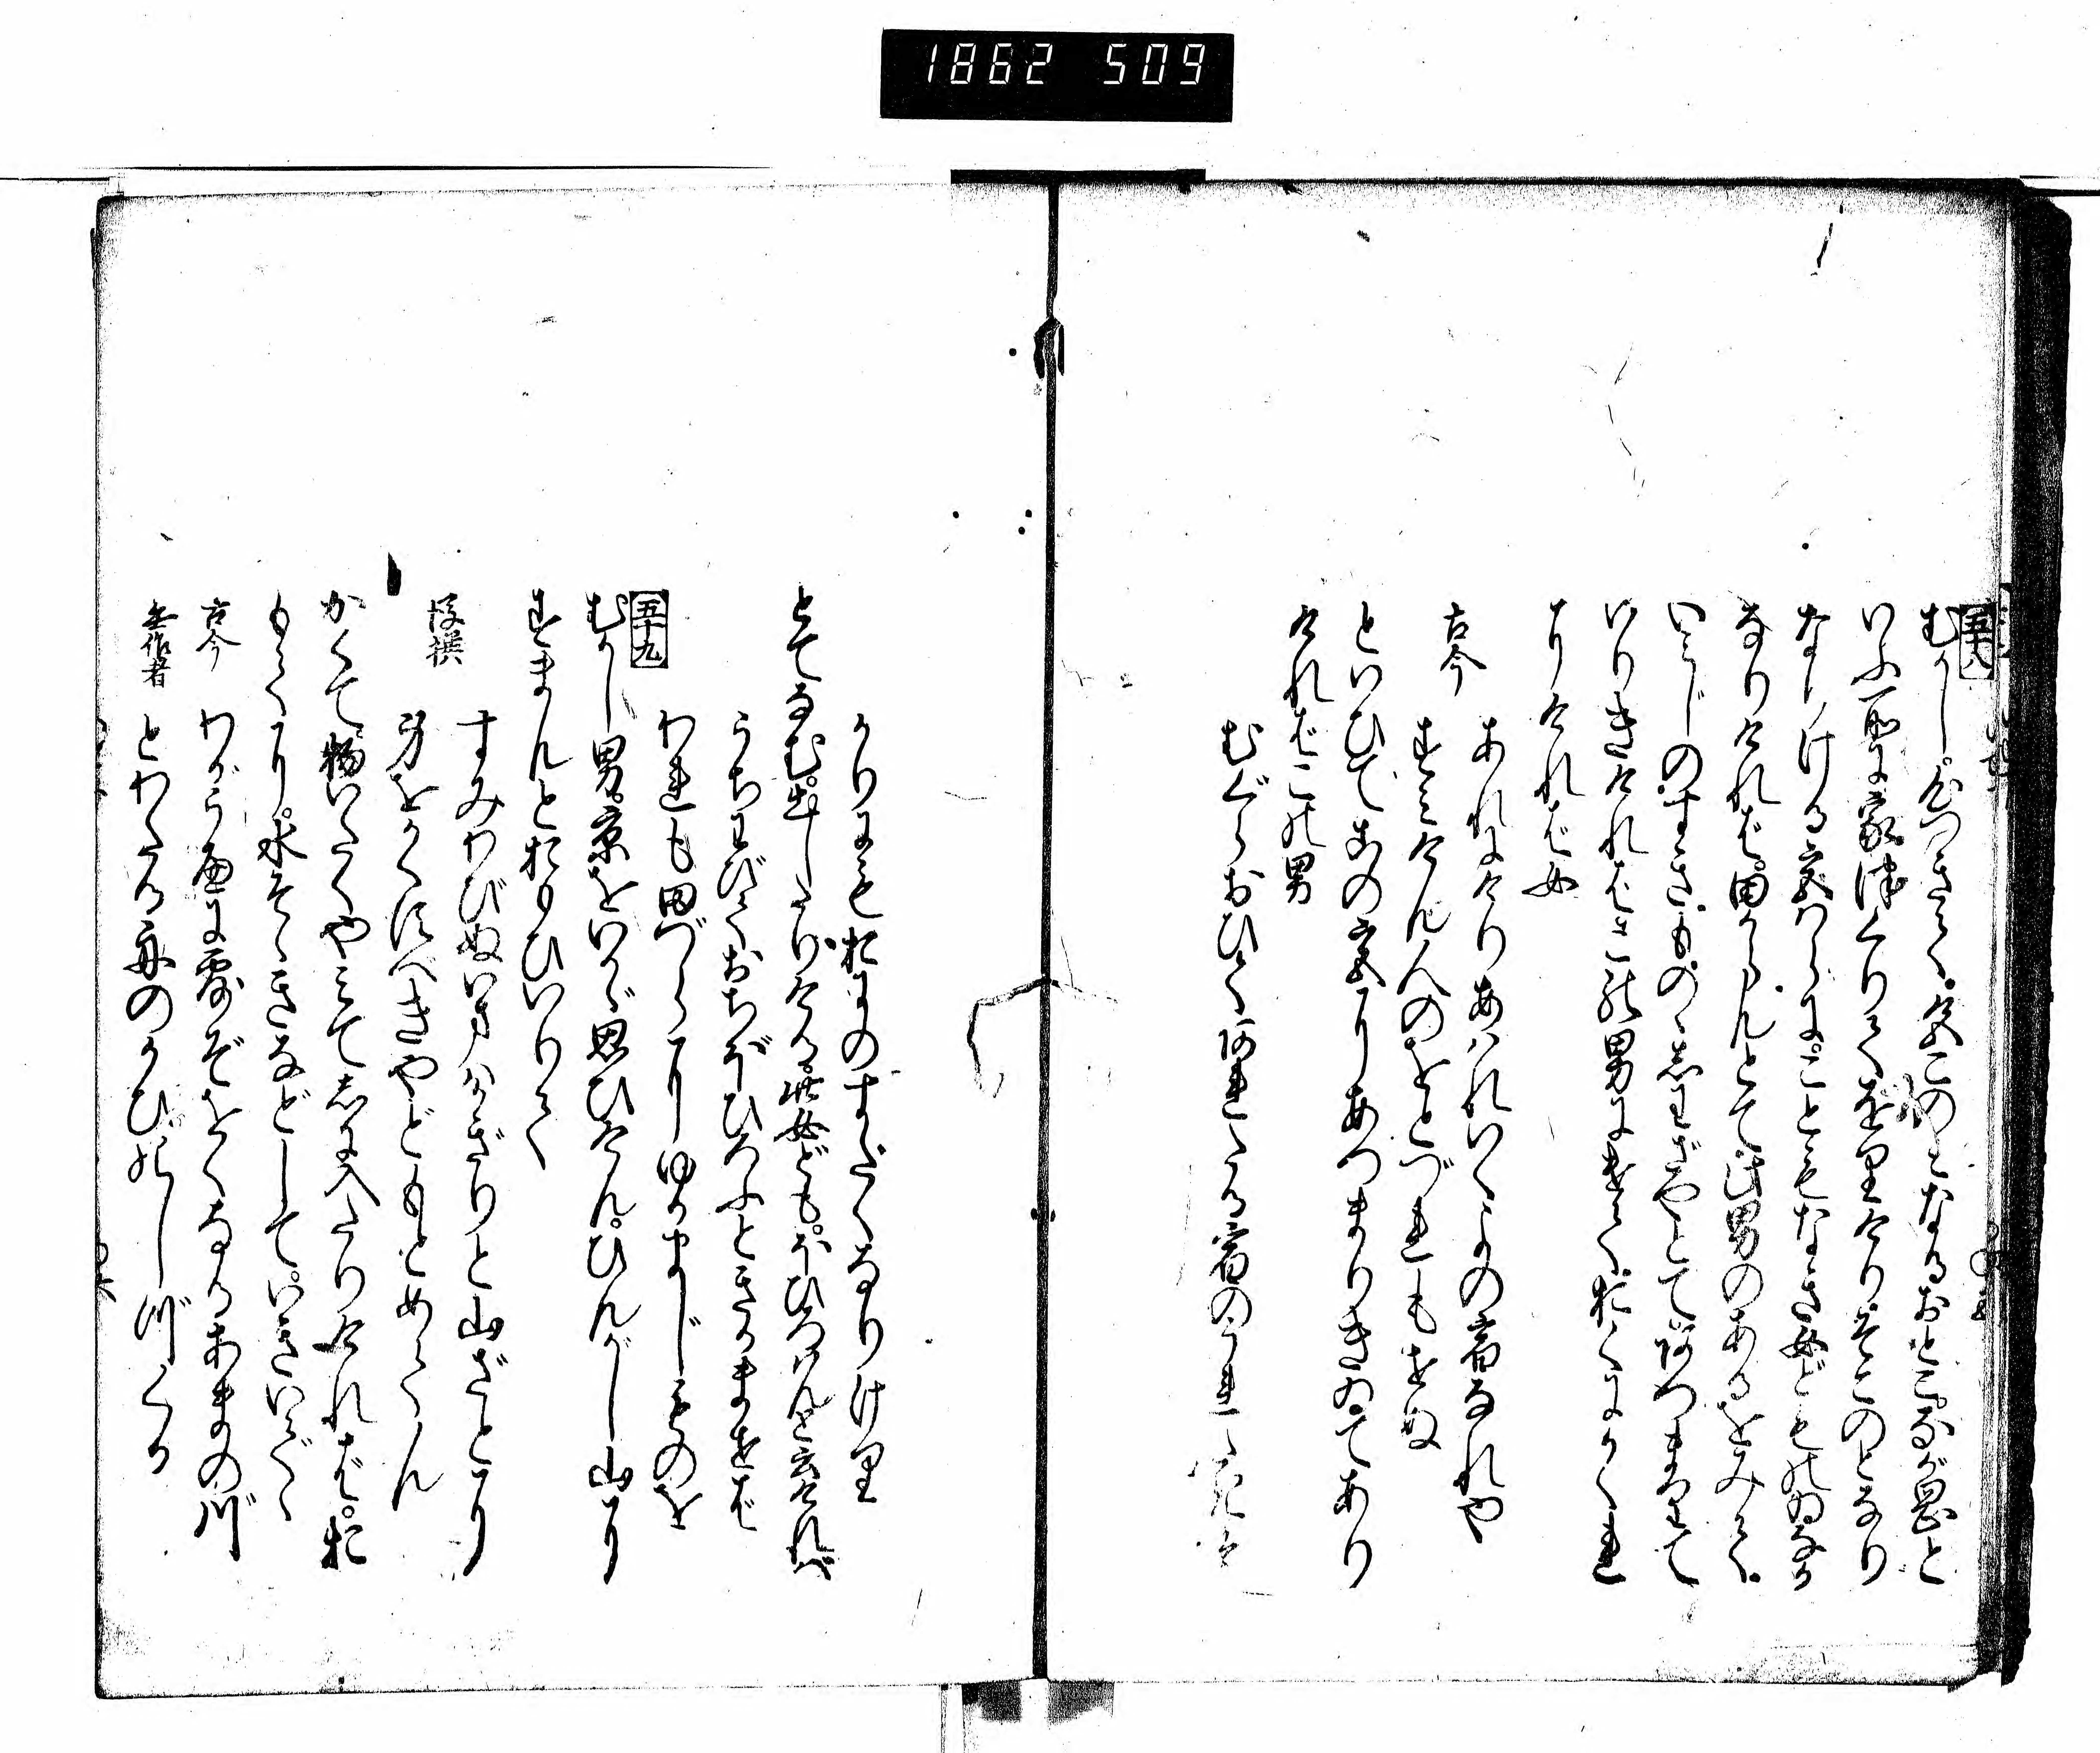 1862 509
五十八
むかし。心つきて。色このみなるおとこ。ながをかと
いふ所に家つくりてをりけり。そこのとなり
なりける宮ばらに。こともなき女どものゐなか
なりければ。田からんとて。此男のあるをみて。
いみじのすきものゝしわざやとて。あつまりて
いりきければ。この男にげて。おくにかくれ
にければ女
古今 あれにけりあはれいくよの宿なれや
すみけん人のをとづれもせぬ
といひてこの宮にあつまりきゐてあり
ければこの男
むぐらおひてあれたる宿のうれたきは
かりにもおにのすだくなりけり
とてなむ。出したりける。此女ども。ほひろはんといひければ
うちわびておちぼひろふときかませば
われも田づらにゆかましものを
五十九
むかし男。京をいかゞ思ひけん。ひんがし山に
すまんとおもひいりて
後撰 すみわびぬいまはかぎりと山ざとに
身をかくすべきやどもとめてん
かくて物いたくやみてしに入たりければ。お
もてに。水そゝきなどして。いきいでゝ
古今 わがうへに露ぞをくなるあまの川
無作者 とわたる舟のかひのしづくか